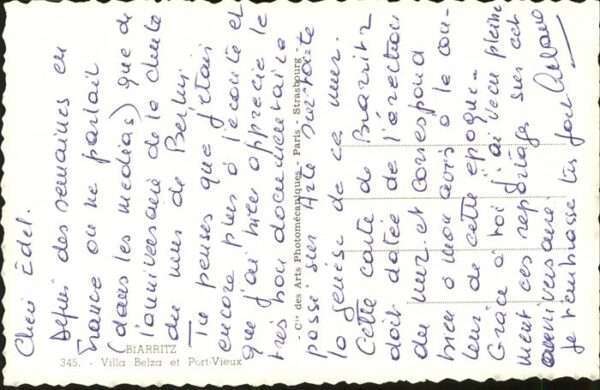 Chère Edel.
Depuis des semaines en
France on ne parlait
(dans les médias) que de
l'anniversaire de la chute
du mur de Berlin.
Tu penses que j'étais
encore plus à l'écoute et
que j'ai bien apprécié le
très bon documentaire
passé sur Arte sur toute
la genèse de ce mur.
Cette carte de Biarritz
doit datée de l'érection
du mur et correspond
bien à mon avis à la cou-
leur de cette époque.
Grâce à toi j'ai vécu pleine-
ment ces reportages sur cet
anniversaire
je t'embrasse très fort
BIARRITZ
345. - Villa Belza et Port-Vieux
- Cie des Arts Photomécaniques - Paris - Strasbourg -